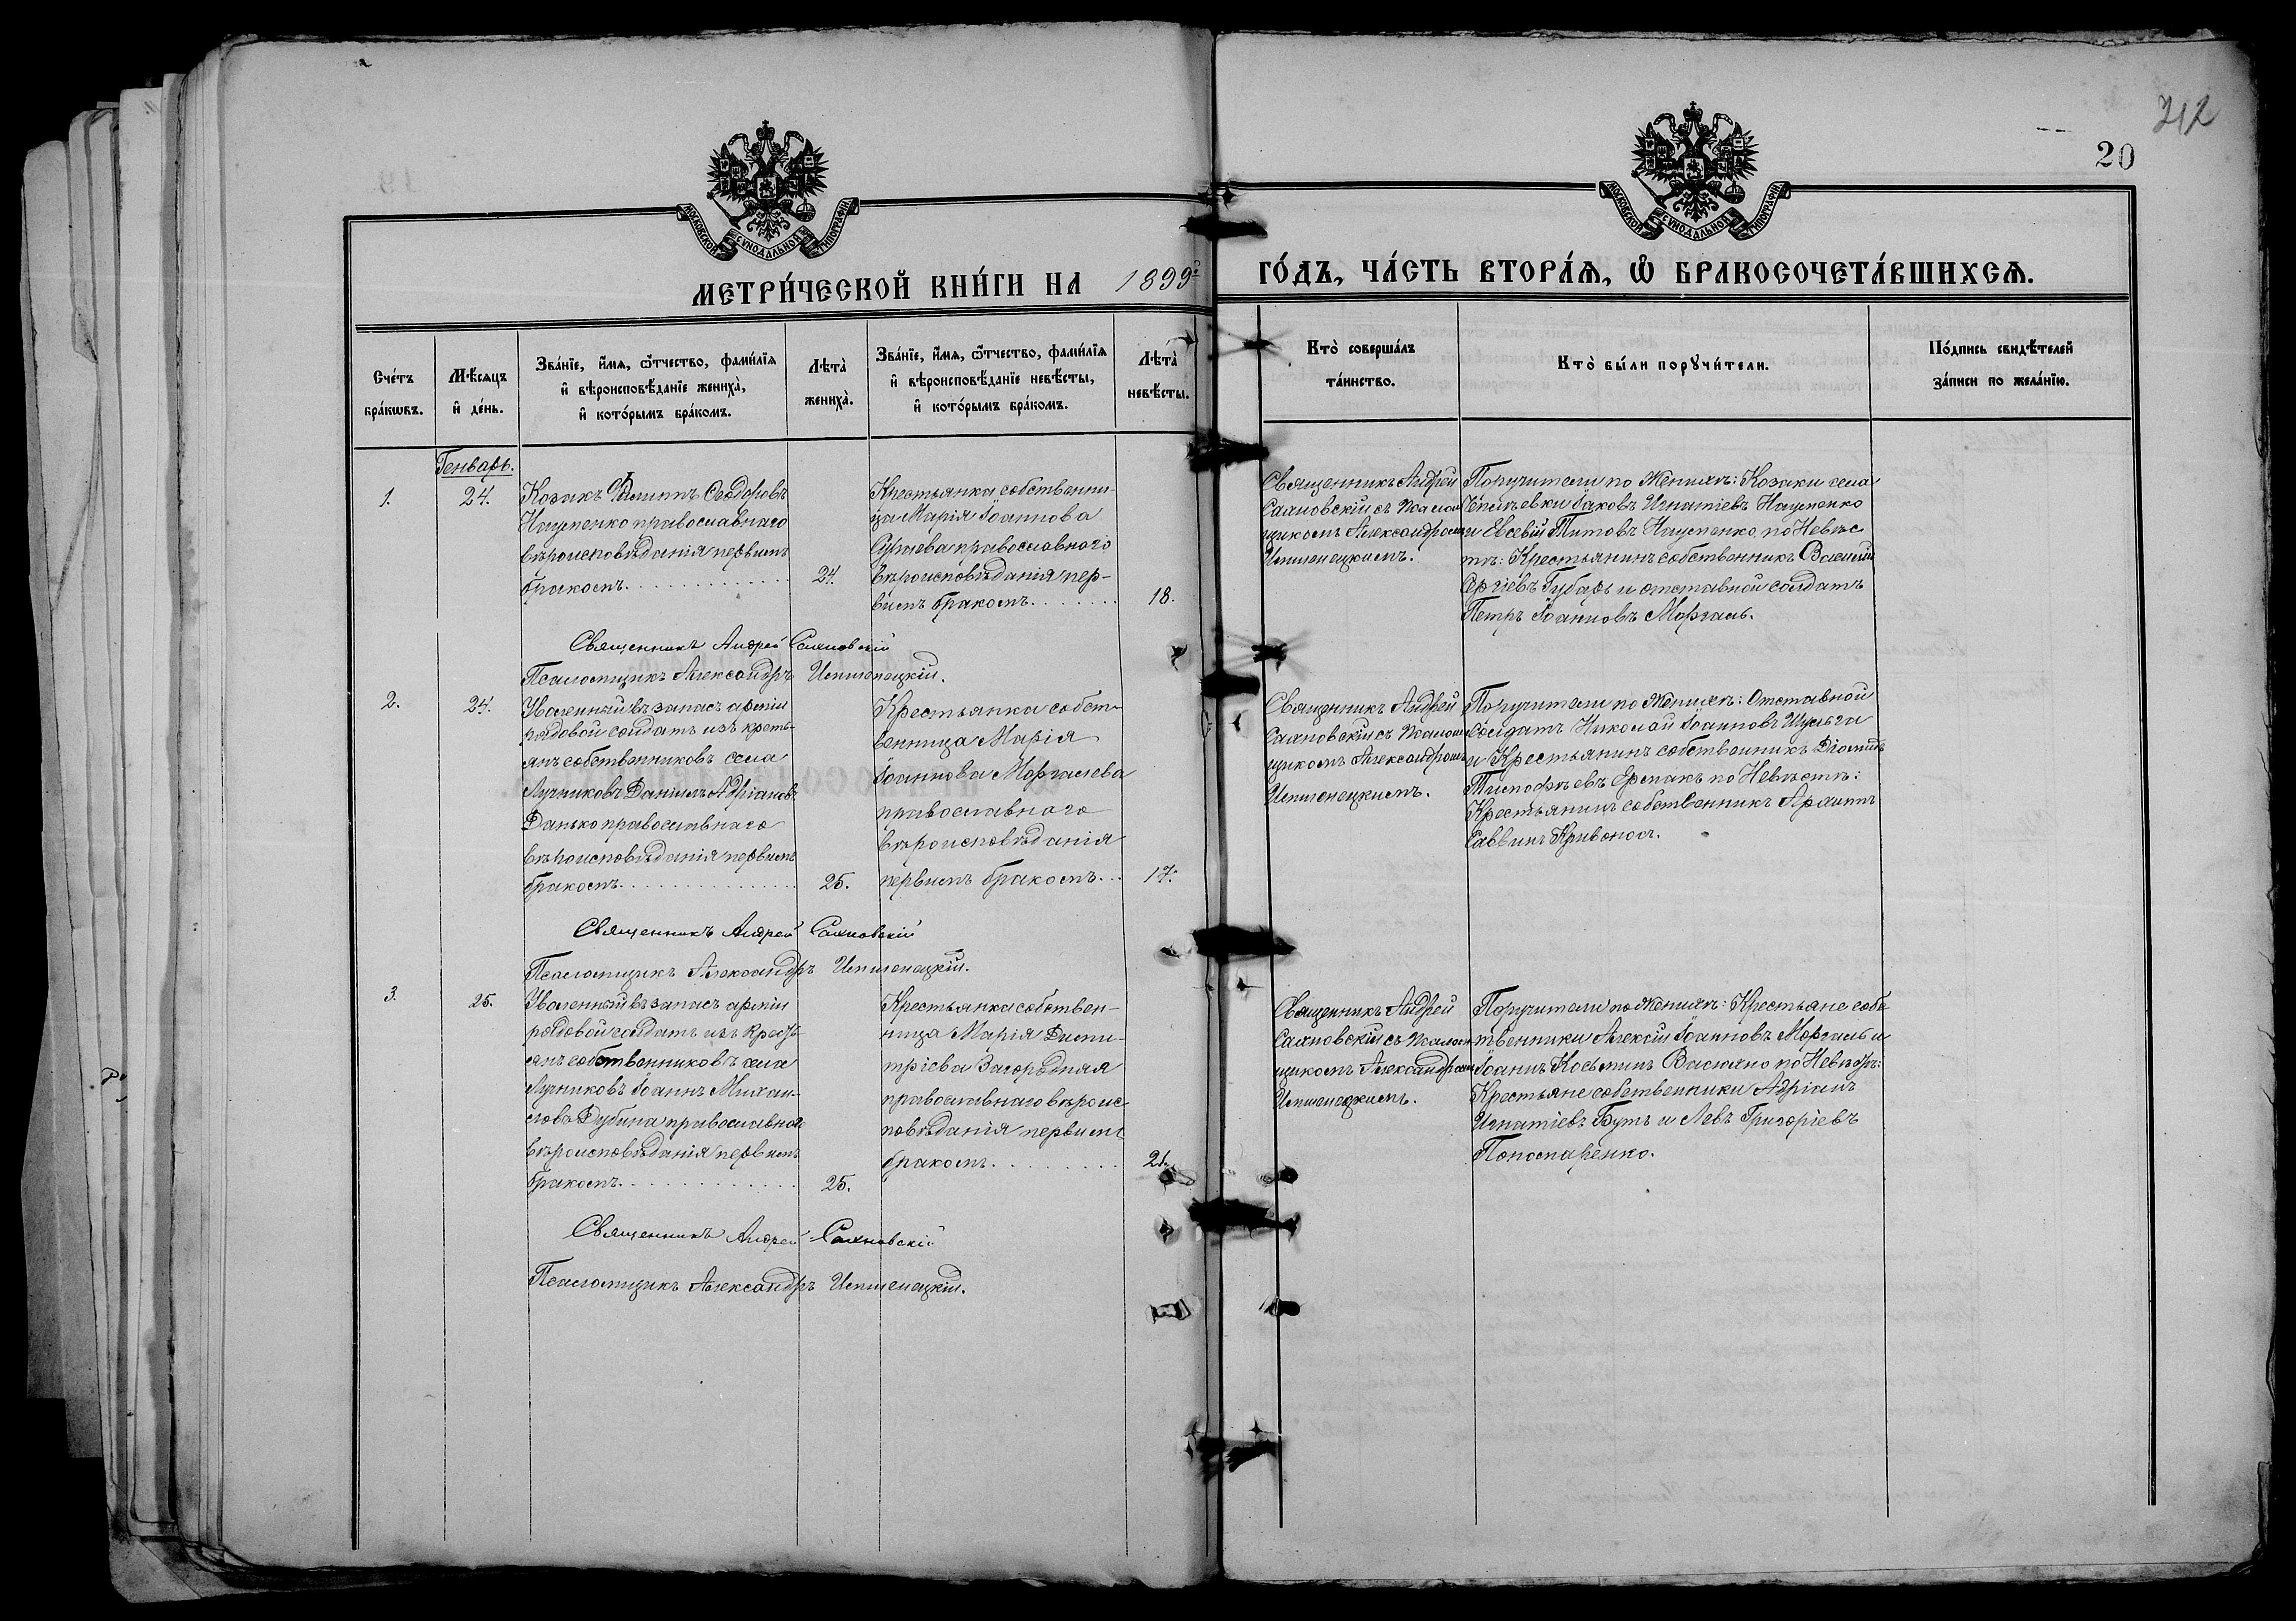 212
20
МОСКОВСКОЙ СѴНОДАЛЬНОЙ ТИПОГРАФІИ
МОСКОВСКОЙ СѴНОДАЛЬНОЙ ТИПОГРАФІИ
МЕТРИ́ЧЕСКОЙ КНИ́ГИ НА 1899 г
ГО́ДЪ, ЧА́СТЬ ВТОРА́Ѧ, Ѡ БРАКОСОЧЕТА́ВШИХСѦ.
Сче́тъ бра́кѡвъ.
Мѣ́сяцъ и де́нь.
Зва́нїе, и́мя, ѿтчество, фами́лїя
и вѣроисповѣ́данїе жениха̀,
и кото́рымъ бра́комъ.
Лѣта̀
жениха̀.
Зва́нїе, и́мя, ѿтчество, фами́лїя
и вѣроисповѣ́данїе невѣ́сты,
и кото́рымъ бра́комъ.
Лѣта̀
невѣ́сты.
Кто̀ соверша́лъ
та́инство.
Кто̀ бы́ли порꙋчи́тели.
По́дпись свидѣ́телей
за́писи по жела́нїю.
Генварь.
1.
24.
Козакъ Филиппъ Ѳеодоровъ
Науменко православнаго
вѣроисповѣданія первымъ
бракомъ.
24.
Крестьянка собственни-
ца Марія Іоаннова
православного
вѣроисповѣданія пер-
вымъ бракомъ.
18.
Священникъ Андрей
Сахновскій съ псалом
щикомъ Александромъ
Поручители по Женихѣ: Козаки села
Іаковъ Игнатіевъ Науменко
и Евсевій Титовъ Науменко, по Невѣс
тѣ: Крестьянинъ собственникъ Василій
Сергіевъ Губарь и отставной солдатъ
Петръ Іоанновъ Моргаль.
Священникъ Андрей Сахновскій
Псаломщикъ Александръ
2.
24.
Уволенный въ запасъ арміи
рядовой солдатъ изъ кресть-
янъ собственниковъ села
Лучниковъ Даніилъ Адріановъ
Данько православнаго
вѣроисповѣданія первымъ
бракомъ.
25.
Крестьянка собст-
венница Марія
Іоаннова Моргалева
православнаго
вѣроисповѣданія
первымъ бракомъ.
17.
Священникъ Андрей
Сахновскій съ псалом
щикомъ Александромъ
Поручители по Женихѣ: Отставной
Солдатъ Николай Іоанновъ Шульга
и Крестьянинъ собственникъ Діомидъ
Тимофѣевъ Ермакъ по Невѣстѣ:
Крестьянинъ собственникъ
Саввинъ Кривоносъ.
Священникъ Андрей Сахновскій
Псаломщикъ Александръ
3.
25.
Уволенный въ запасъ арміи
рядовой солдатъ изъ Кресть-
янъ собственниковъ села
Лучниковъ Іоаннъ Михаи-
ловъ Дубина православнаго
вѣроисповѣданія первымъ
бракомъ.
25.
Крестьянка собствен-
ница Марія Дими-
тріева Загородняя
православнаго вѣроис-
повѣданія первымъ
бракомъ.
21.
Священникъ Андрей
Сахновскій съ псалом
щикомъ Александромъ
Поручители по Женихѣ: Крестьяне собс
твенники Алексій Іоанновъ Моргаль и
Іоаннъ Косьминъ по Невѣстѣ:
Крестьяне собственники Адріанъ
Игнатіевъ Бутъ и Левъ Григоріевъ
Пономаренко.
Священникъ Андрей Сахновскій
Псаломщикъ Александръ